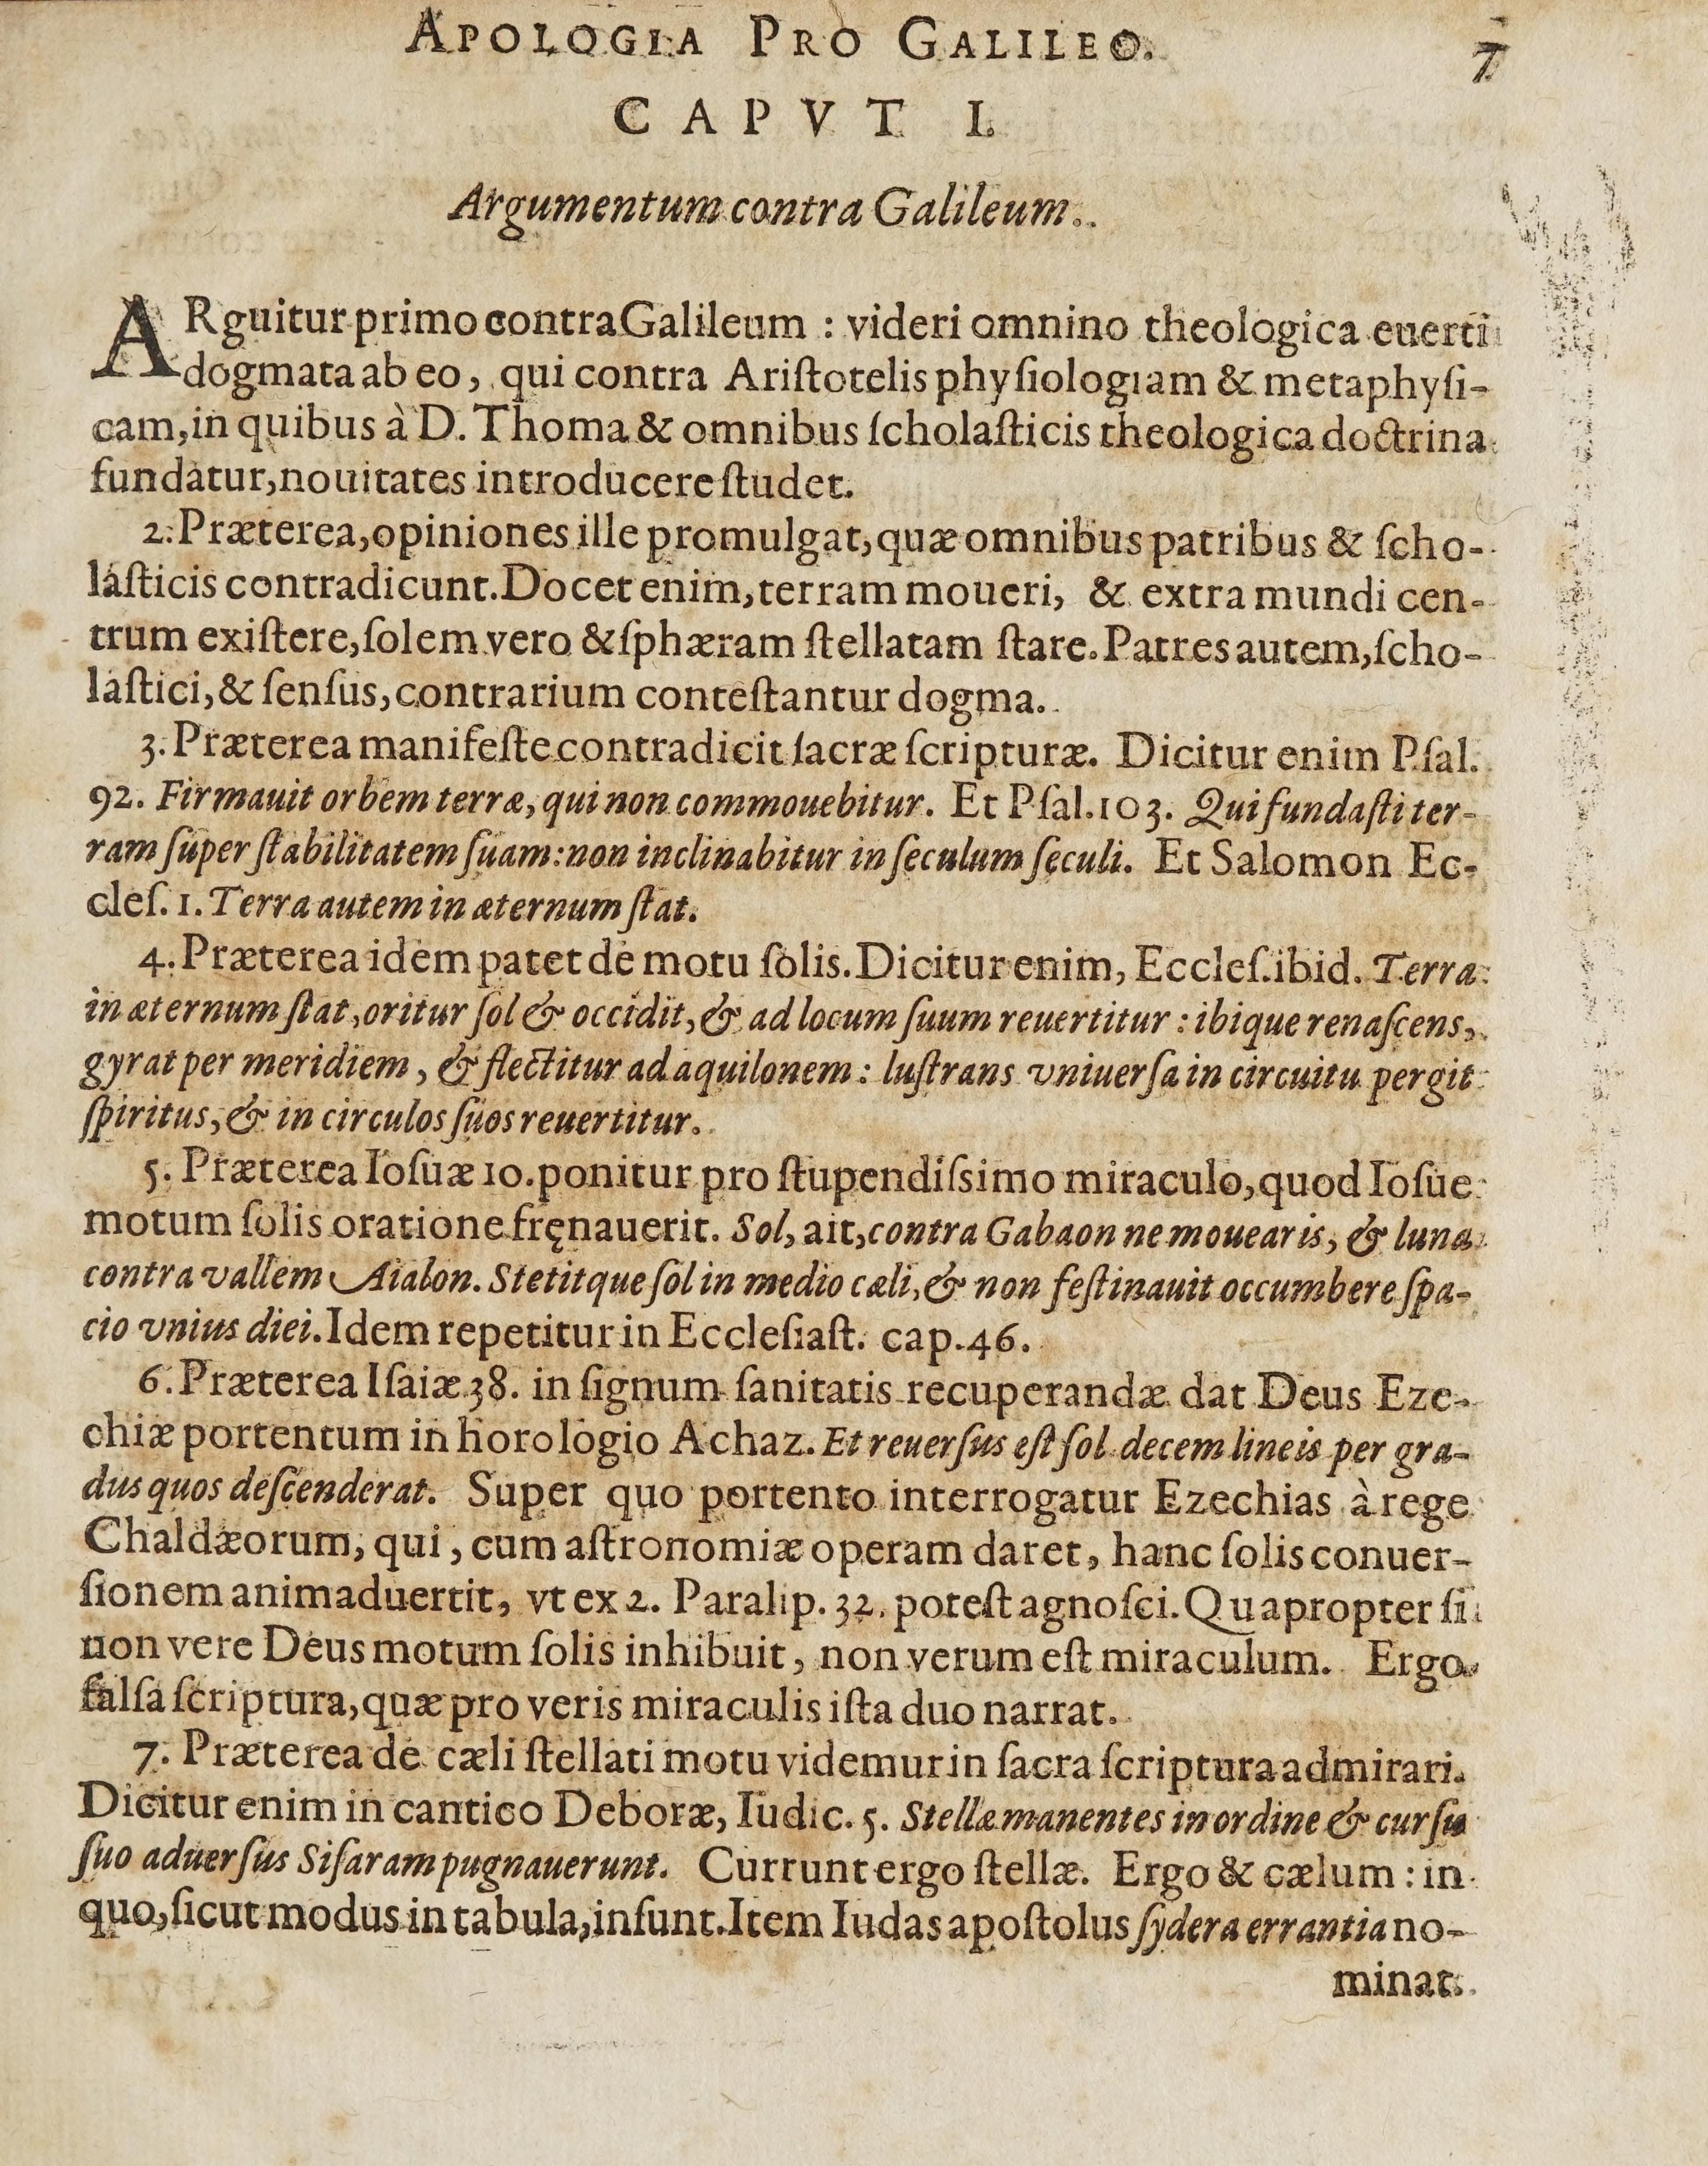 APOLOGIA PRO GALILEO. 7
CAPVT I.
Argumentum contra Galileum.
ARguitur primo contra Galileum : videri omnino theologica euerti
dogmata ab eo, qui contra Ariſtotelis phyſiologiam & metaphyſi-
cam, in quibus à D. Thoma & omnibus ſcholaſticis theologica doctrina
fundatur, nouitates introducere ſtudet.
2. Præterea, opiniones ille promulgat, quæ omnibus patribus & ſcho-
laſticis contradicunt. Docet enim, terram moueri, & extra mundi cen-
trum exiſtere, ſolem vero & ſphæram ſtellatam ſtare. Patres autem, ſcho-
laſtici, & ſenſus, contrarium conteſtantur dogma.
3. Præterea manifeſte contradicit ſacræ ſcripturæ. Dicitur enim Pſal.
92. Firmauit orbem terræ, qui non commouebitur. Et Pſal. 103. Qui fundaſti ter-
ram ſuper ſtabilitatem ſuam: non inclinabitur in ſeculum ſeculi. Et Salomon Ec-
cleſ. 1. Terra autem in æternum ſtat.
4. Præterea idem patet de motu ſolis. Dicitur enim, Eccleſ. ibid. Terra
in æternum ſtat, oritur ſol & occidit, & ad locum ſuum reuertitur : ibique renaſcens,
gyrat per meridiem, & flectitur ad aquilonem : luſtrans vniuerſa in circuitu pergit
ſpiritus, & in circulos ſuos reuertitur.
5. Præterea Ioſuæ 10. ponitur pro ſtupendiſsimo miraculo, quod Ioſue
motum ſolis oratione fręnauerit. Sol, ait, contra Gabaon ne mouearis, & luna
contra vallem Aialon. Stetitque ſol in medio cæli, & non feſtinauit occumbere ſpa-
cio vnius diei. Idem repetitur in Eccleſiaſt. cap. 46.
6. Præterea Iſaiæ 38. in ſignum ſanitatis recuperandæ dat Deus Eze-
chiæ portentum in horologio Achaz. Et reuerſus eſt ſol decem lineis per gra-
dus quos deſcenderat. Super quo portento interrogatur Ezechias à rege
Chaldæorum, qui, cum aſtronomiæ operam daret, hanc ſolis conuer-
ſionem animaduertit, vt ex 2. Paralip. 32. poteſt agnoſci. Quapropter ſi
non vere Deus motum ſolis inhibuit, non verum eſt miraculum. Ergo
falſa ſcriptura, quæ pro veris miraculis iſta duo narrat.
7. Præterea de cæli ſtellati motu videmur in ſacra ſcriptura admirari.
Dicitur enim in cantico Deboræ, Iudic. 5. Stellæ manentes in ordine & curſu
ſuo aduerſus Siſaram pugnauerunt. Currunt ergo ſtellæ. Ergo & cælum : in
quo, ſicut modus in tabula, inſunt. Item Iudas apoſtolus ſydera errantia no-
minat.